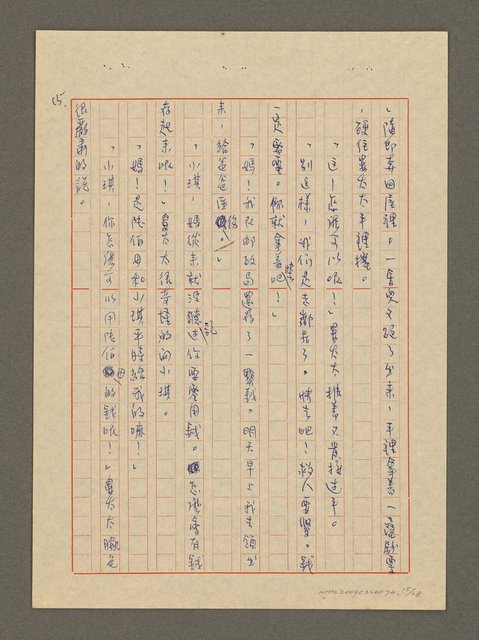 」隨即奔回屋裡。一會兒又跑了出來,手裡拿著一疊鈔票
,硬往太太手裡
「這!怎麼可以呢!」太太推著又肯接過手。
「別這樣,咱們是老鄰居了。快去吧!救人要緊。錢
一定要。你就拿著吧!」
「媽!我在郵政局還存了一點錢。明天早上我去領出
來,給爸爸醫傷。」
「小琪,媽從來就沒聽說過你要零用錢。怎麼會有錢
存起來呢!」太太很奇怪的問小琪。
「媽!是陸伯母和小琪平時給我的嘛!」
「小琪,你怎麼可以用陸伯母的錢呢!」太太臉色
很嚴肅的說。
15.
NMTL20090220074 15/28